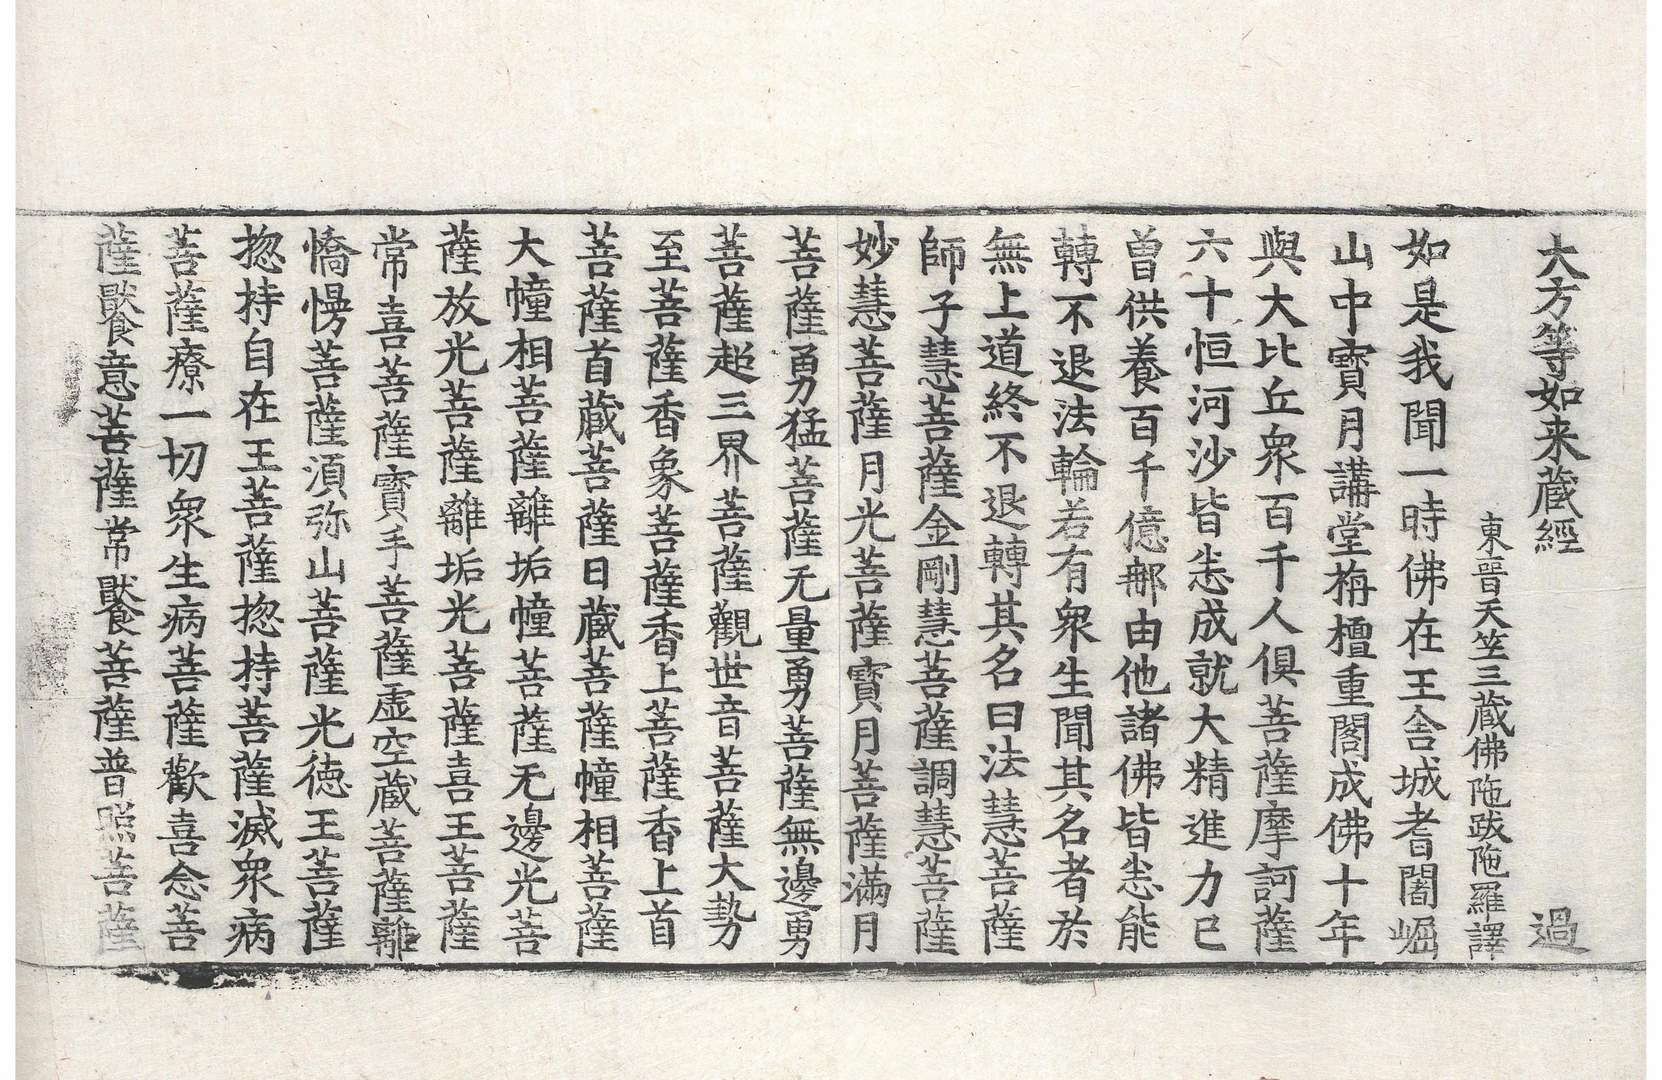 大方等如来蔵經 過
東晉天竺三蔵佛陁跋陁羅譯
如是我聞一時佛在王舍城耆闍崛
山中寳月講堂栴檀重閣成佛十年
與大比丘衆百千人俱菩薩摩訶薩
六十恒河沙皆悉成就大精進力已
曽供養百千億郍由他諸佛皆悉能
轉不退法輪若有衆生聞其名者於
無上道終不退轉其名曰法慧菩薩
師子慧菩薩金剛慧菩薩調慧菩薩
妙慧菩薩月光菩薩寳月菩薩滿月
菩薩勇猛菩薩无量勇菩薩無邊勇
菩薩超三界菩薩觀世音菩薩大勢
至菩薩香象菩薩香上菩薩香上首
菩薩首蔵菩薩日蔵菩薩幢相菩薩
大幢相菩薩離垢幢菩薩无邊光菩
薩放光菩薩離垢光菩薩喜王菩薩
常喜菩薩寳手菩薩虚空蔵菩薩離
憍慢菩薩湏弥山菩薩光徳王菩薩
捴持自在王菩薩捴持菩薩滅衆病
菩薩療一切衆生病菩薩歡喜念菩
薩猒意菩薩常猒菩薩普照菩薩